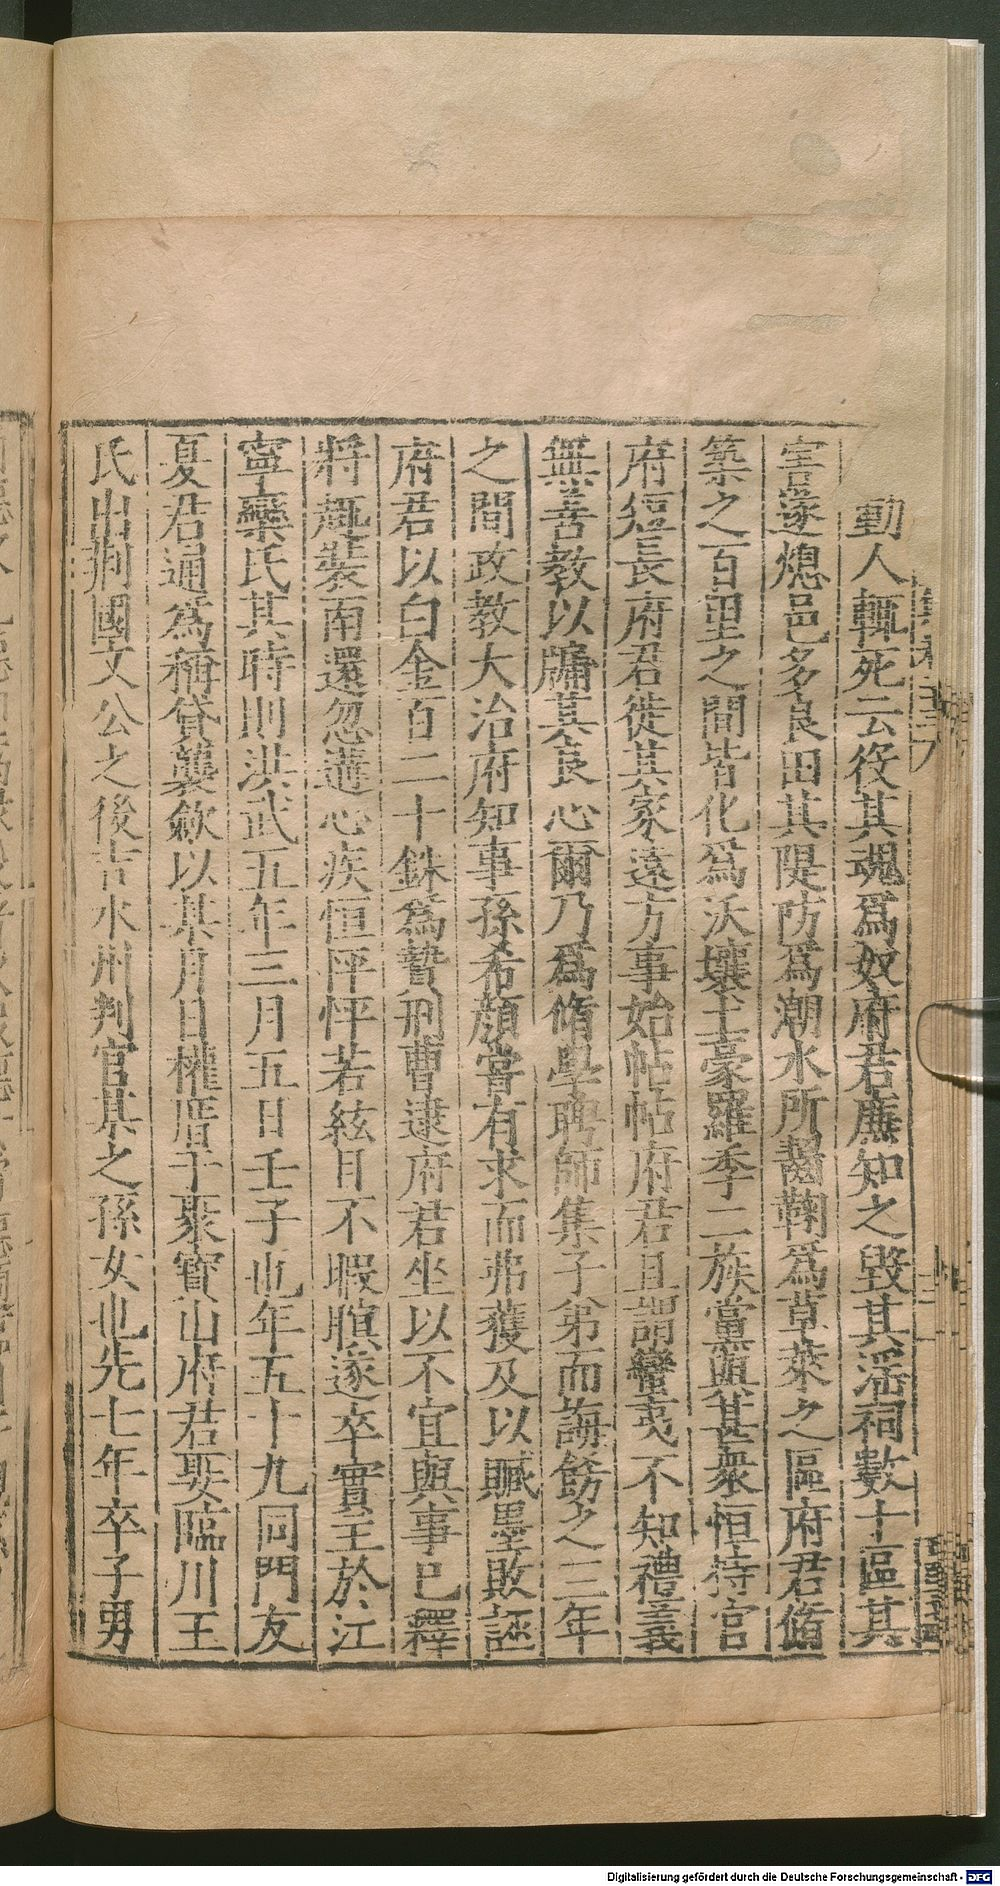 動人輒死云役其魂爲奴府君廉知之毀其滛祠數十區其
害遂熄邑多良田其隄防爲潮水所齧鞠爲草萊之區府君脩
築之百里之間皆化爲沃壤土豪羅季二族黨與甚衆恒持官
府短長府君徙其家遠方事始帖帖府君且謂蠻夷不知禮義
無善教以牖其良心爾乃爲脩學聘師集子弟而誨飭之三年
之間政教大治府知事孫希顔嘗有求而弗獲及以贓墨敗誣
府君以白金百二十銖爲贄刑曹逮府君坐以不宜與事已釋
將趣裝南還忽遘心疾恒怦怦若絃目不暇瞚遂卒實王於江
寧欒氏其時則洪武五年三月五日壬子也年五十九同門友
夏君通爲稱貸襲斂以某月日權厝于聚寶山府君娶臨川王
氏出荆國文公之後吉水州判官某之孫女也先七年卒子男
Digitalisierung gefördert durch die Deutsche Forschungsgemeinschaft - DFG